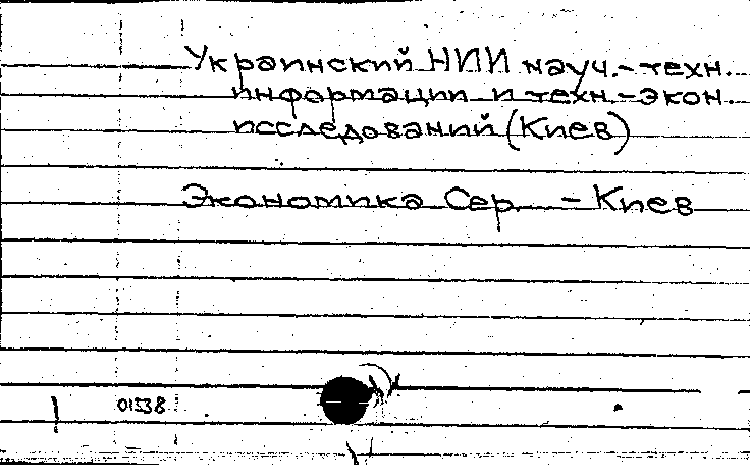 Украинский НИИ науч.-техн.
информации и техн.-экон.
исследований (Киев)
Экономика Сер. - Киев
01538